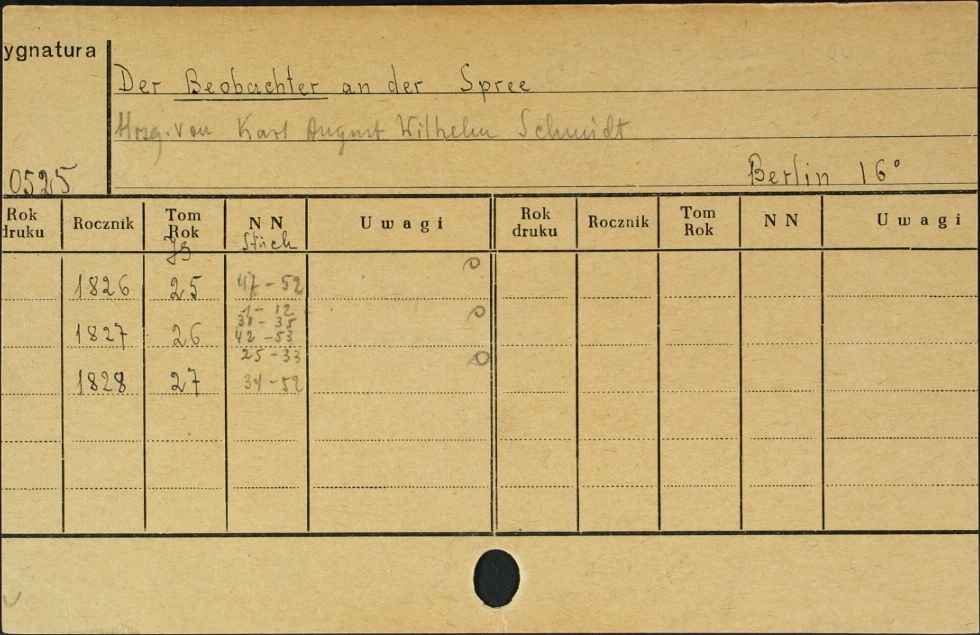 ygnatura
Der Beobachter an der Spree
Hrsg. von Karl August Wilhelm Schmidt
0525
Berlin 16°
Rok druku Rocznik Tom Rok Jg N N Stück Uwagi Rok druku Rocznik Tom Rok N N Uwagi
1826 25 47-52
1-12
31-35
1827 26 42-53
25-33
1828 27 34-52